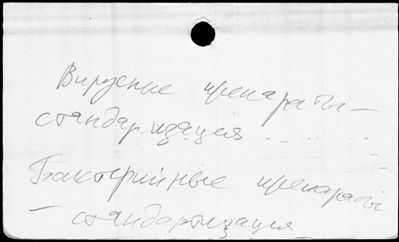 Вирусные препараты —
стандартизация . . . .
Бактерийные препараты
— стандартизация